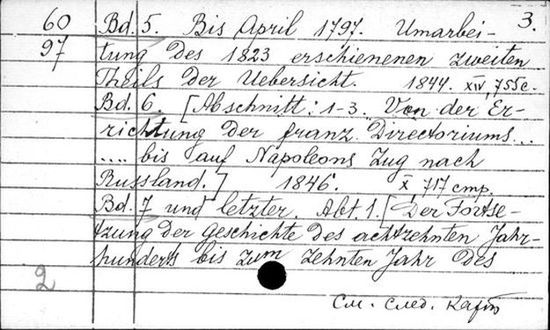 3.
60 Bd. 5. Bis April 1797. Umarbei-
97 tung des 1823 erschienenen zweiten
Theils der Uebersicht. 1844. XIV, 755 c.
Bd. 6. [Abschnitt: 1-3. Von der Er-
richtung der franz. Directoriums...
.... bis auf Napoleons Zug nach
Russland.] 1846. X, 717 стр.
Bd. 7 und letzter. Abt. 1. [Der Fortse-
tzung der Geschichte des achtzehnten Jahr-
hunderts bis zum zehnten Jahr des
2
См. след. карт